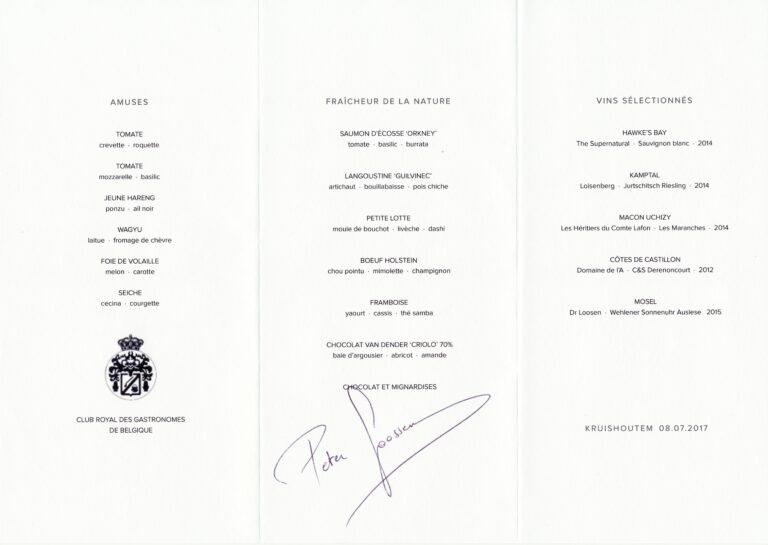 AMUSES
TOMATE
crevette · roquette
TOMATE
mozzarelle · basilic
JEUNE HARENG
ponzu · ail noir
WAGYU
laitue · fromage de chèvre
FOIE DE VOLAILLE
melon · carotte
SEICHE
cecina · courgette
CLUB ROYAL DES GASTRONOMES
DE BELGIQUE
FRAÎCHEUR DE LA NATURE
SAUMON D'ÉCOSSE 'ORKNEY'
tomate · basilic · burrata
LANGOUSTINE 'GUILVINEC'
artichaut · bouillabaisse · pois chiche
PETITE LOTTE
moule de bouchot · livèche · dashi
BOEUF HOLSTEIN
chou pointu · mimolette · champignon
FRAMBOISE
yaourt · cassis · thé samba
CHOCOLAT VAN DENDER 'CRIOLO' 70%
baie d'argousier · abricot · amande
CHOCOLAT ET MIGNARDISES
Peter Goossens
VINS SÉLECTIONNÉS
HAWKE'S BAY
The Supernatural · Sauvignon blanc · 2014
KAMPTAL
Loisenberg · Jurtschitsch Riesling · 2014
MACON UCHIZY
Les Héritiers du Comte Lafon · Les Maranches · 2014
CÔTES DE CASTILLON
Domaine de l'A · C&S Derenoncourt · 2012
MOSEL
Dr Loosen · Wehlener Sonnenuhr Auslese 2015
KRUISHOUTEM 08.07.2017